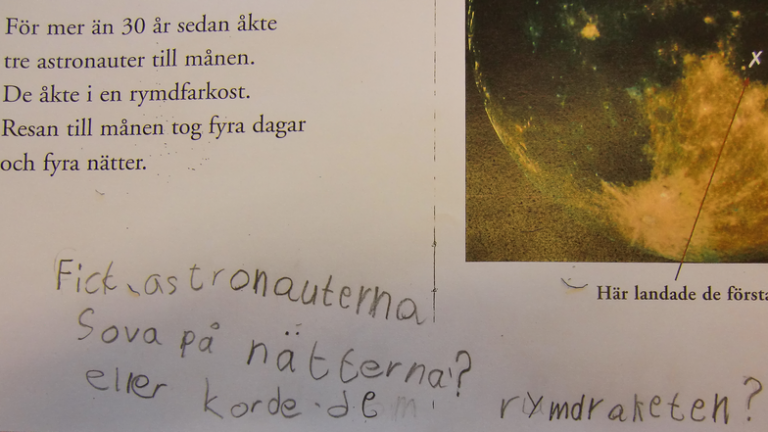 För mer än 30 år sedan åkte
tre astronauter till månen.
De åkte i en rymdfarkost.
Resan till månen tog fyra dagar
och fyra nätter.
X
Här landade de första
Fick astronauterna
Sova på nätterna?
eller korde dem rymdraketen?